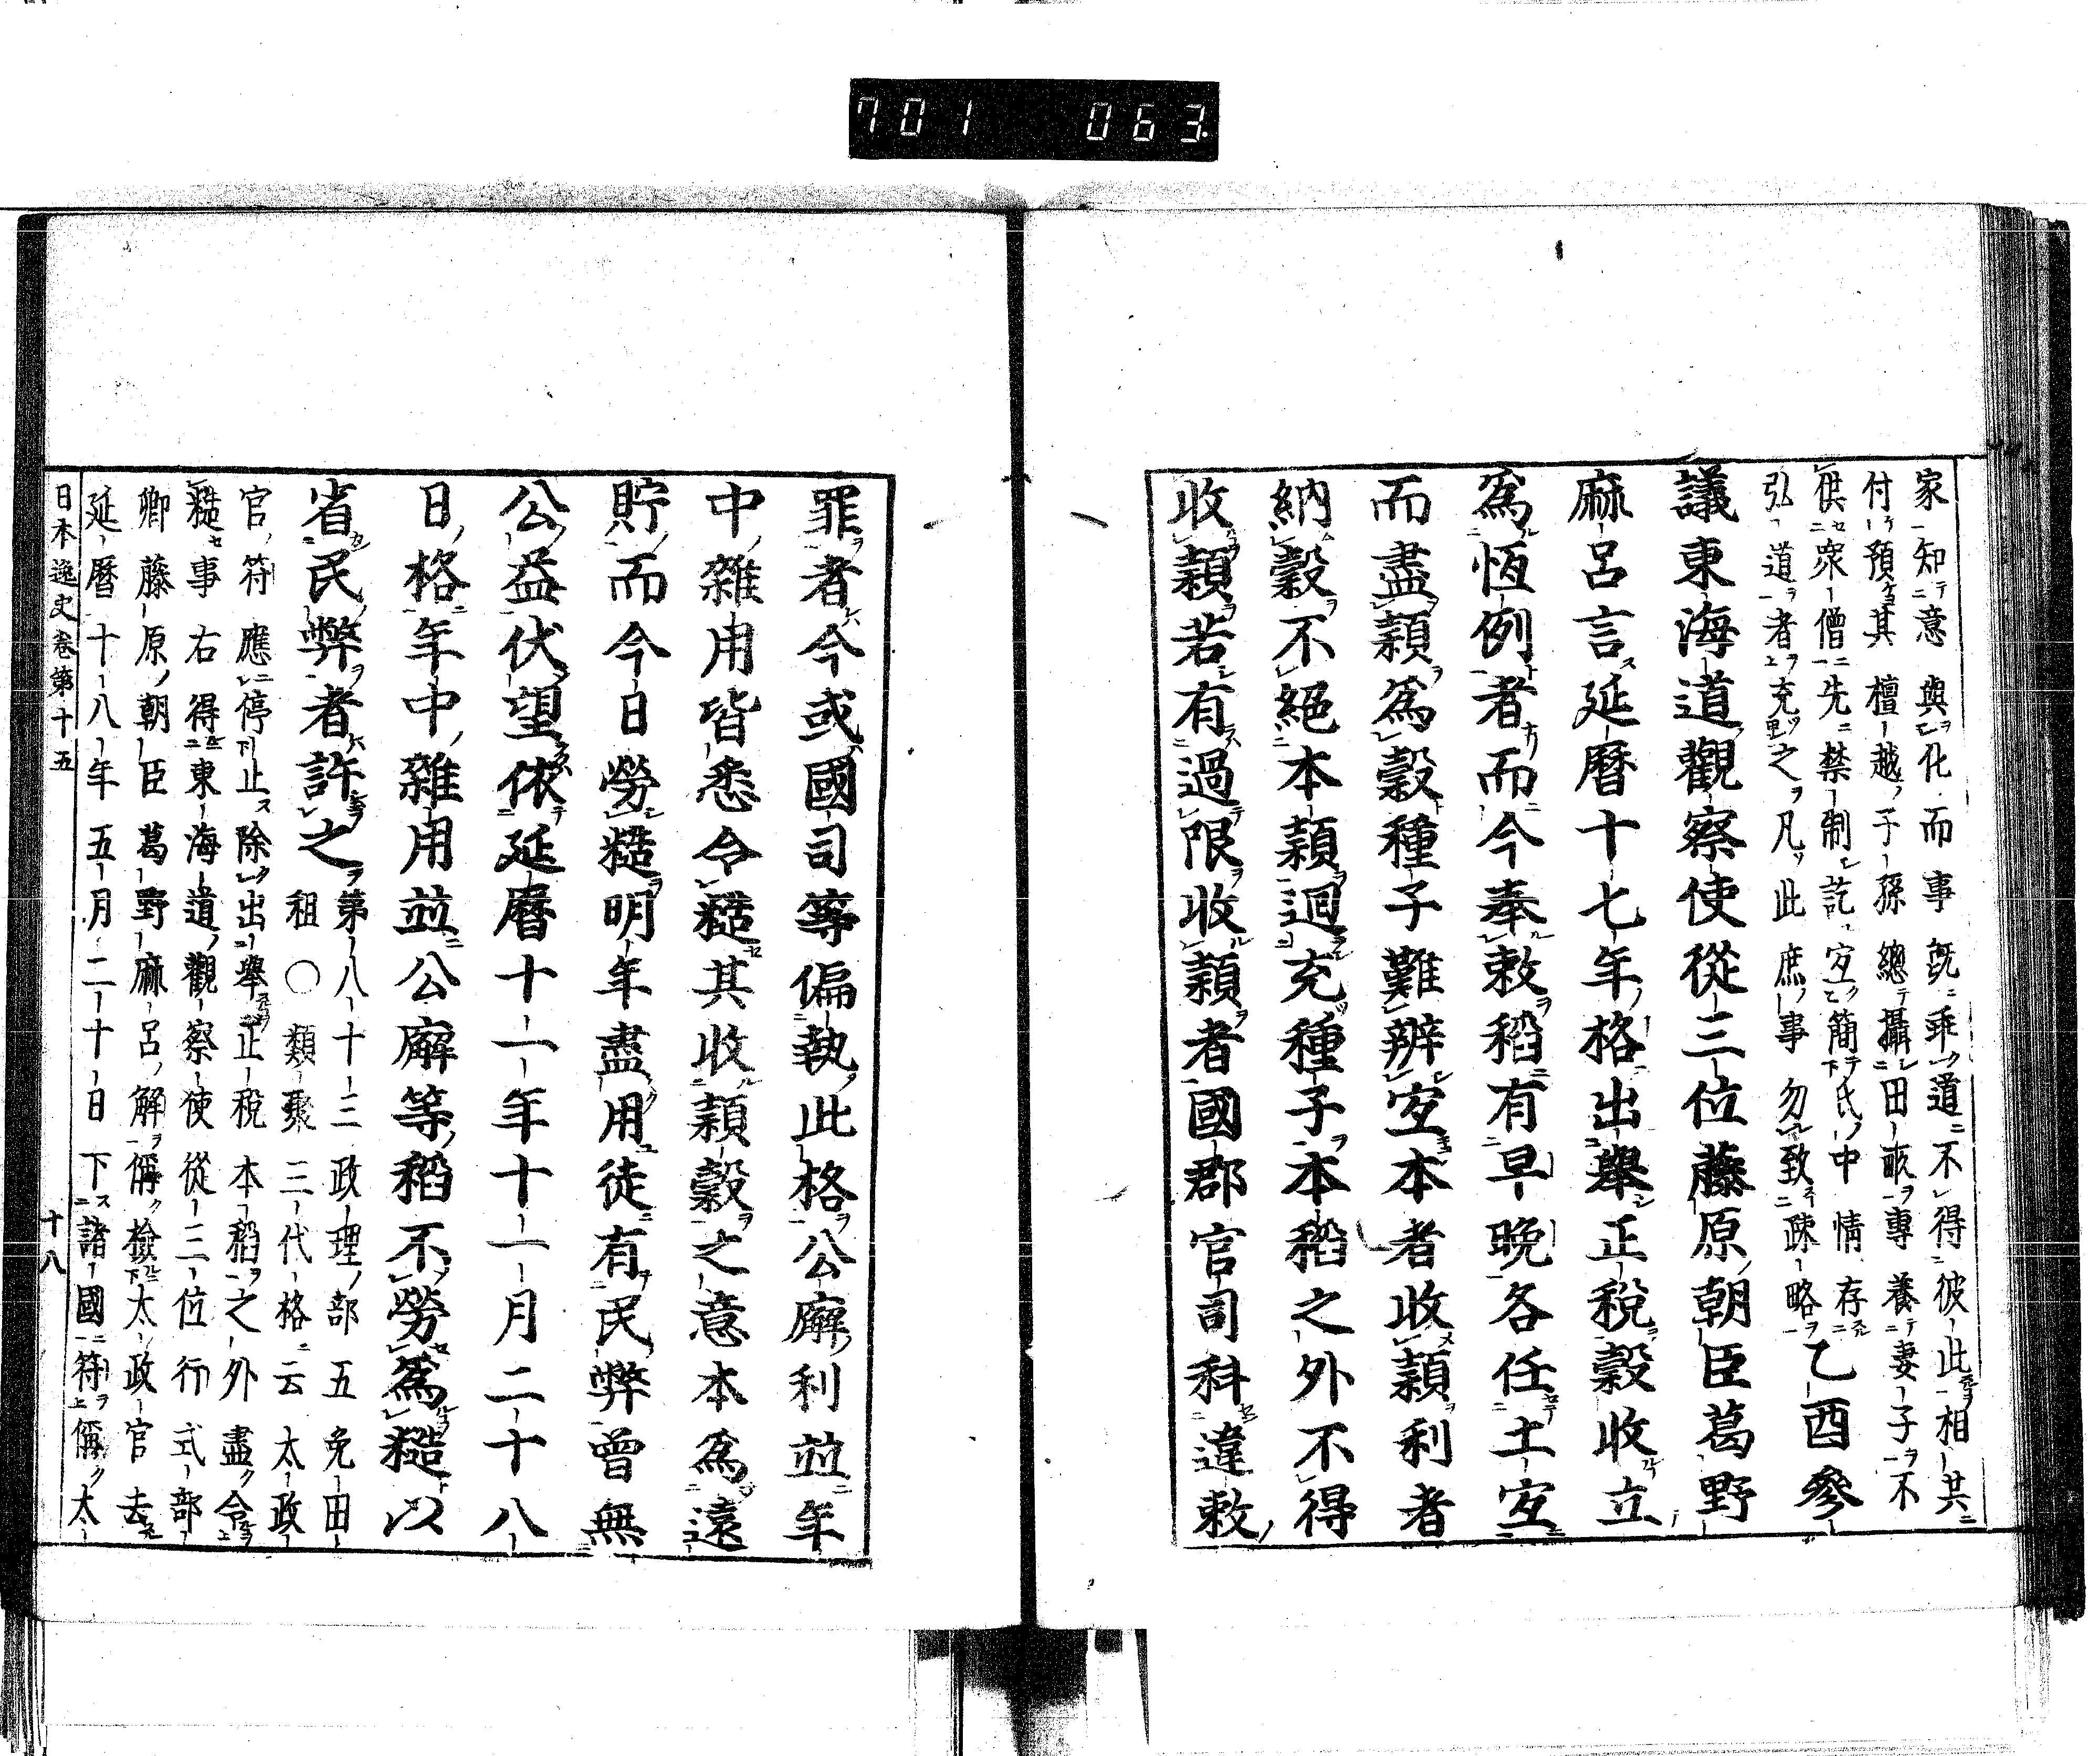 701 063
家知意與化而事既乖道不得彼此相共
付預其檀越子孫總攝田畝專養妻子不
供衆僧先禁制訖宜簡氏中情存
弘道者充之凡此庶事勿致疎略乙酉參
議東海道觀察使從三位藤原朝臣葛野
麻呂言延曆十七年格出舉正稅穀收立
爲恆例者而今奉敕稻有早晚各任土宜
而盡穎爲穀種子難辨宜本者收穎利者
納穀不絕本穎迴充種子本稻之外不得
收穎若有過限收穎者國郡官司科違敕
罪者今或國司等偏執此格公廨利並年
中雜用皆悉令糙其收穎穀之意本爲遠
貯而今日勞糙明年盡用徒有民弊曾無
公益伏望依延曆十一年十一月二十八
日格年中雜用並公廨等稻不勞爲糙以
省民弊者許之第八十三政理部五免田
租○類聚三代格云太政
官符應停止除出舉正稅本稻之外盡令
糙事右得東海道觀察使從三位行式部
卿藤原朝臣葛野麻呂解偁檢太政官去
延曆十八年五月二十日下諸國符偁太
日本逸史卷第十五 十八